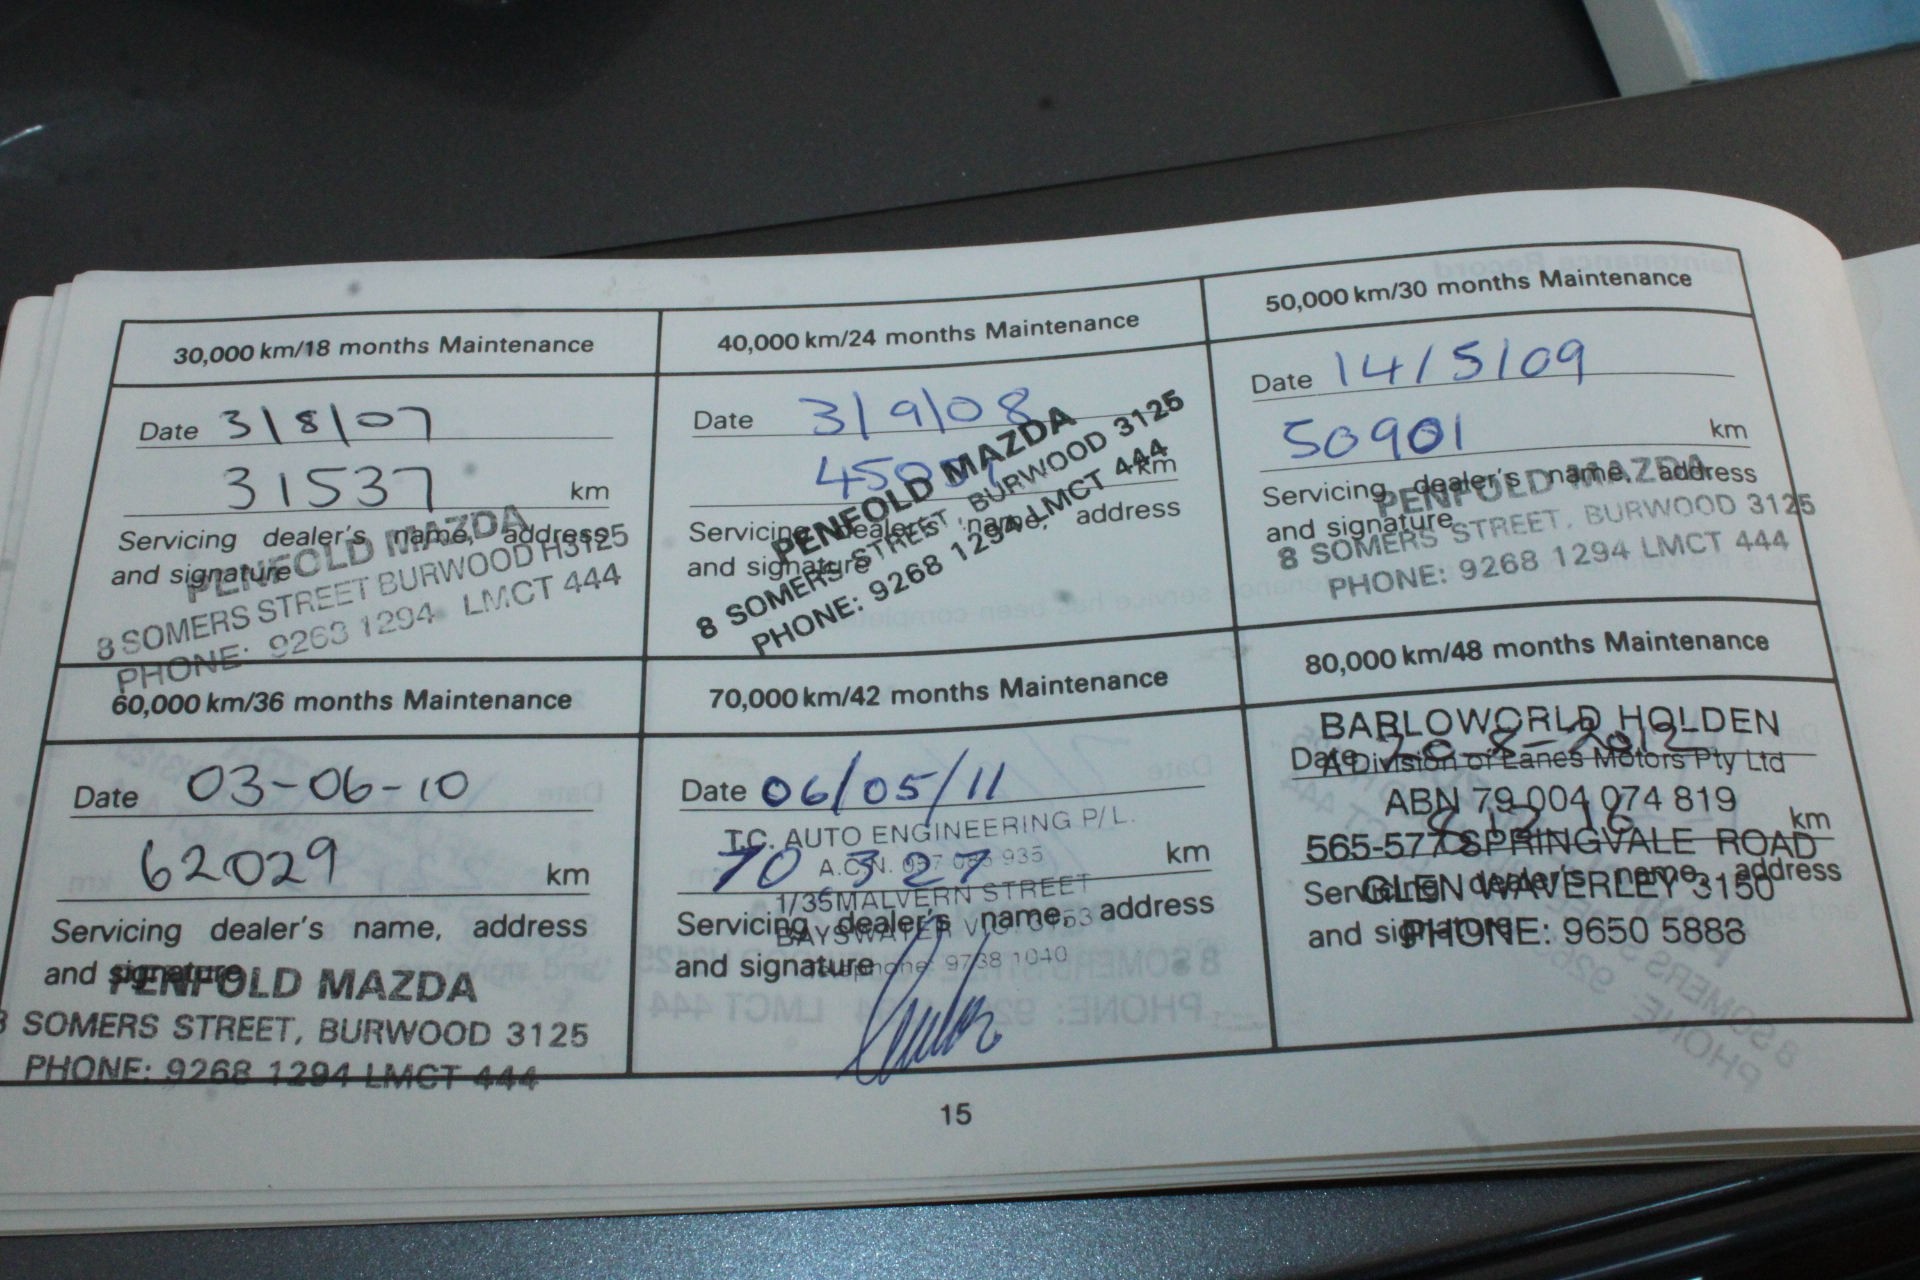 30,000 km/18 months Maintenance
Date 3/8/07
31537 km
Servicing dealer's name, address
and signature
PENFOLD MAZDA
8 SOMERS STREET BURWOOD H3125
PHONE: 9263 1294 LMCT 444
40,000 km/24 months Maintenance
Date 3/9/08
km
Servicing dealer's name, address
and signature
PENFOLD MAZDA
8 SOMERS STREET, BURWOOD 3125
PHONE: 9268 1294 LMCT 444
50,000 km/30 months Maintenance
Date 14/5/09
50901 km
Servicing dealer's name, address
and signature
PENFOLD MAZDA
8 SOMERS STREET, BURWOOD 3125
PHONE: 9268 1294 LMCT 444
60,000 km/36 months Maintenance
Date 03-06-10
62029 km
Servicing dealer's name, address
and signature
PENFOLD MAZDA
8 SOMERS STREET, BURWOOD 3125
PHONE: 9268 1294 LMCT 444
70,000 km/42 months Maintenance
Date 06/05/11
T.C. AUTO ENGINEERING P/L.
A.C.N. 935
70 327 km
1/35 MALVERN STREET
Servicing dealer's name, address
BAYSWATER VIC
and signature
Telephone: 9738 1040
80,000 km/48 months Maintenance
BARLOWORLD HOLDEN
Date 20-8-2012
A Division of Lanes Motors Pty Ltd
ABN 79 004 074 819
km
565-577 SPRINGVALE ROAD
Servicing dealer's name, address
GLEN WAVERLEY 3150
and signature
PHONE: 9650 5888
15